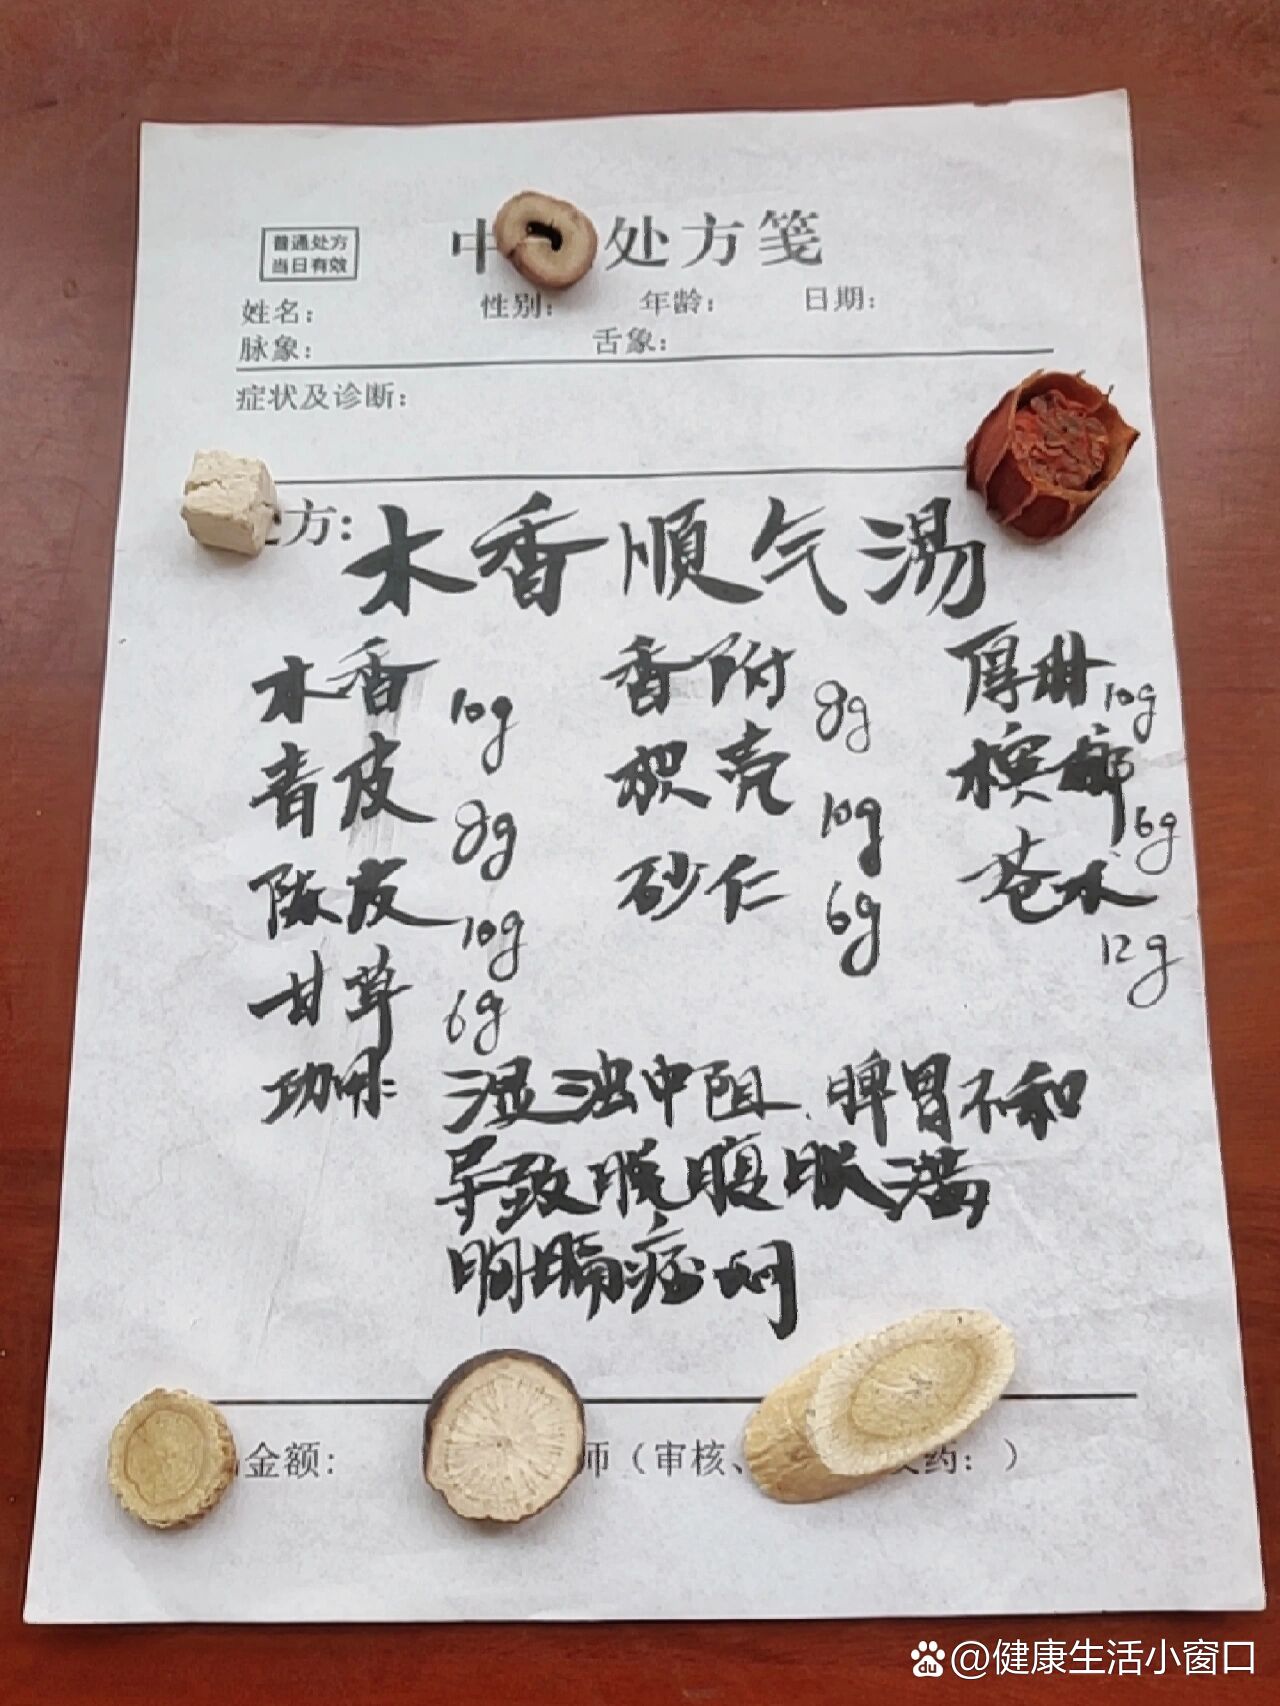 普通处方
当日有效
中 处方笺
姓名： 性别： 年龄： 日期：
脉象： 舌象：
症状及诊断：
方：木香顺气汤
木香 10g 香附 8g 厚朴 10g
青皮 8g 枳壳 10g 槟榔 6g
陈皮 10g 砂仁 6g 苍术 12g
甘草 6g
功用： 湿浊中阻、脾胃不和
导致脘腹胀满
胸膈痞闷
金额： 师（审核、 药：）
@健康生活小窗口